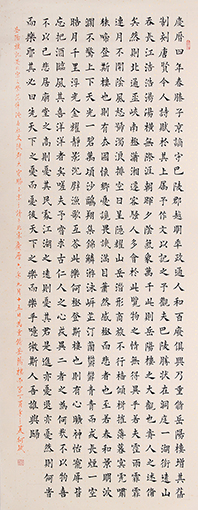 慶曆四年春滕子京謫守巴陵郡越明年政通人和百廢俱興乃重修岳陽樓增其舊
制刻唐賢今人詩賦於其上屬予作文以記之予觀夫巴陵勝狀在洞庭一湖銜遠山
吞長江浩浩湯湯橫無際涯朝暉夕陰氣象萬千此則岳陽樓之大觀也前人之述備
矣然則北通巫峽南極瀟湘遷客騷人多會於此覽物之情得無異乎若夫霪雨霏霏
連月不開陰風怒號濁浪排空日星隱耀山岳潛形商旅不行檣傾楫摧薄暮冥冥虎嘯
猿啼登斯樓也則有去國懷鄉憂讒畏譏滿目蕭然感極而悲者也至若春和景明波
瀾不驚上下天光一碧萬頃沙鷗翔集錦鱗游泳岸芷汀蘭郁郁青青而或長煙一空
皓月千里浮光耀金靜影沉璧漁歌互答此樂何極登斯樓也則有心曠神怡寵辱皆
忘把酒臨風其喜洋洋者矣嗟夫予嘗求古仁人之心或異二者之為何哉不以物喜
不以己悲居廟堂之高則憂其民處江湖之遠則憂其君是進亦憂退亦憂然則何時
而樂耶其必曰先天下之憂而憂後天下之樂而樂乎噫微斯人吾誰與歸